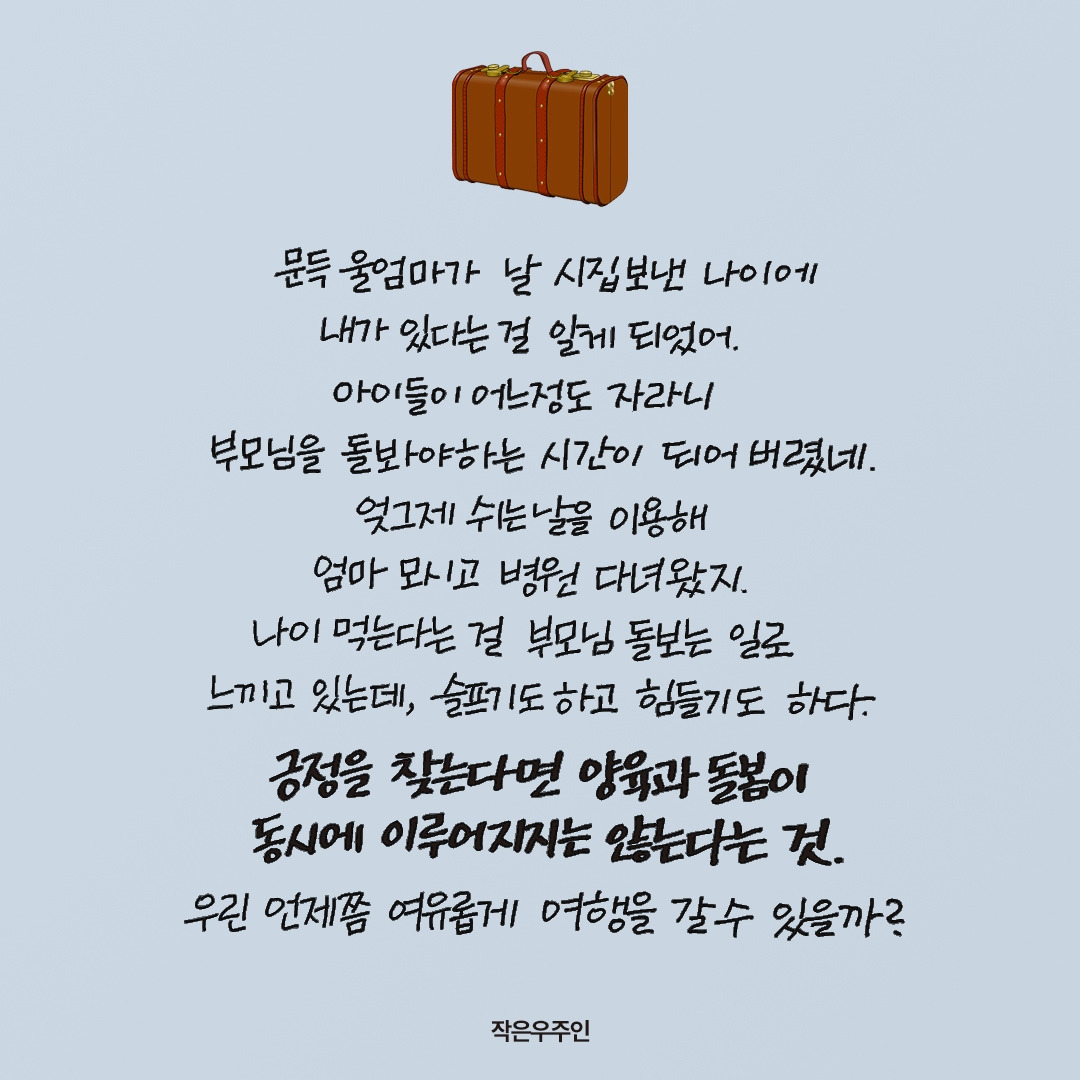 문득 울엄마가 날 시집보낸 나이에
내가 있다는 걸 알게 되었어.
아이들이 어느정도 자라니
부모님을 돌봐야하는 시간이 되어 버렸네.
엊그제 쉬는날을 이용해
엄마 모시고 병원 다녀왔지.
나이 먹는다는 걸 부모님 돌보는 일로
느끼고 있는데, 슬프기도 하고 힘들기도 하다.
긍정을 찾는다면 양육과 돌봄이
동시에 이루어지지는 않는다는 것.
우린 언제쯤 여유롭게 여행을 갈 수 있을까?
작은우주인